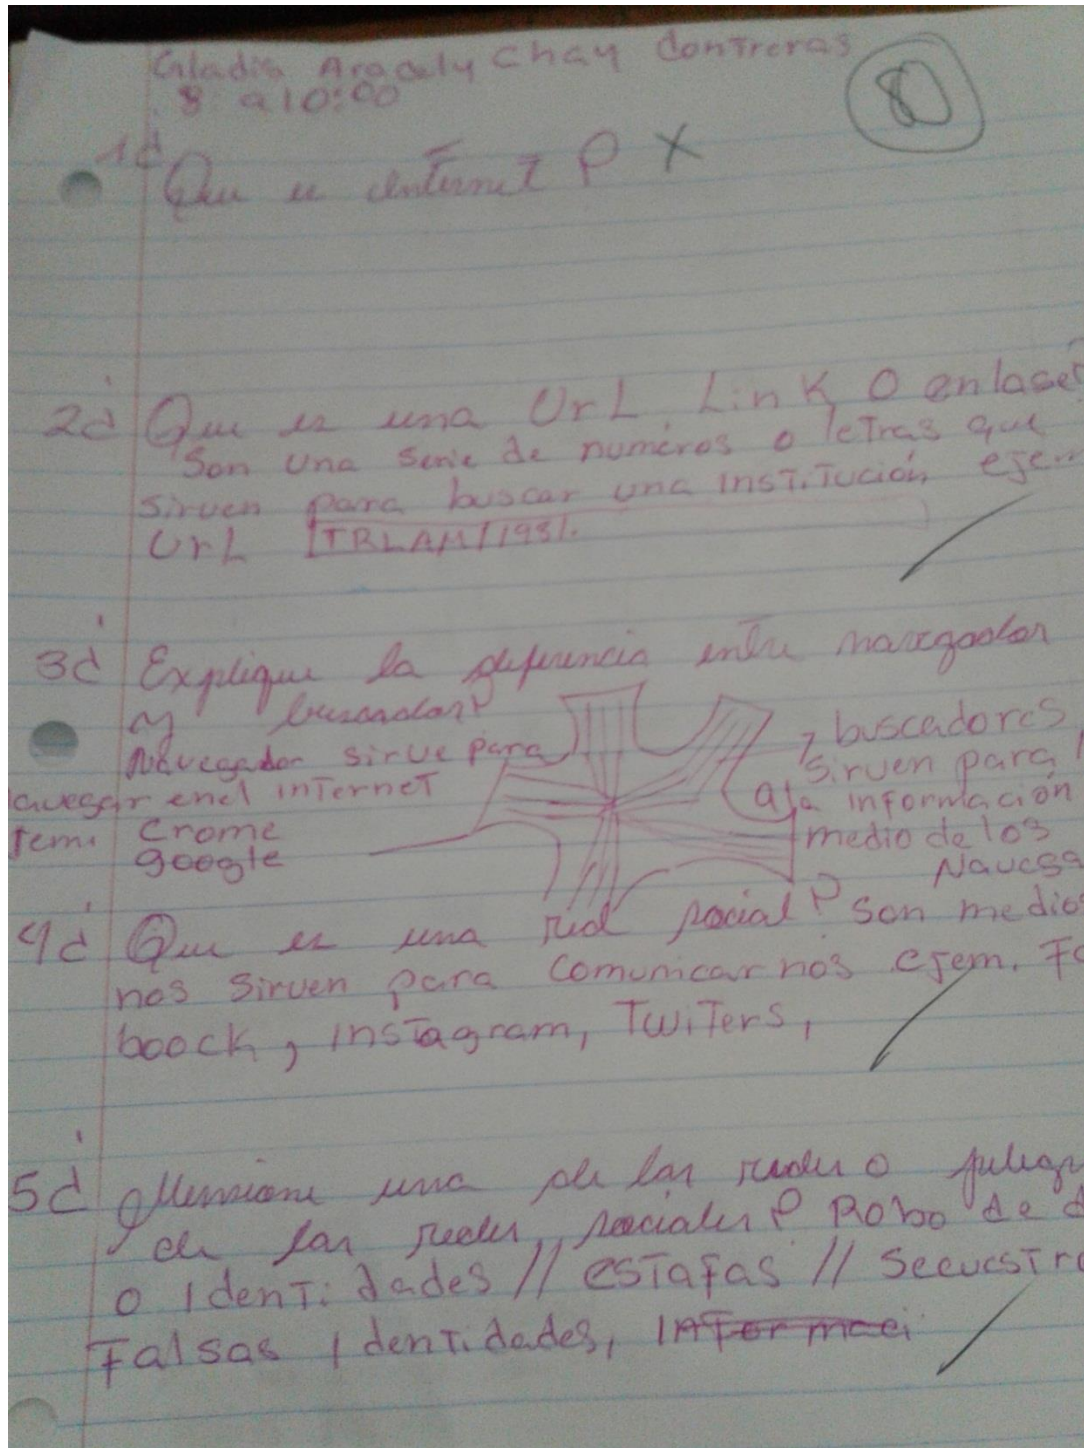 Gladis Aracely Chay Contreras
8 a 10:00
80
1¿ Que es internet? X
2¿ Que es una UrL, Link, O enlace?
Son una serie de numeros o letras que
sirven para buscar una institución ejem
UrL TRLAM/1981.
3¿ Explique la diferencia entre navegador
y buscador?
Navegador sirve para
avegar en el internet
Crome
google
buscadores
sirven para
a la información
medio de los
Navega
4¿ Que es una red social? Son medios
nos sirven para comunicarnos ejem. Fa
boock, instagram, Twiters,
5¿ Mensione una de las redes o peligr
de las redes sociales? Robo de d
o identidades // estafas // secuestro
Falsas identidades,